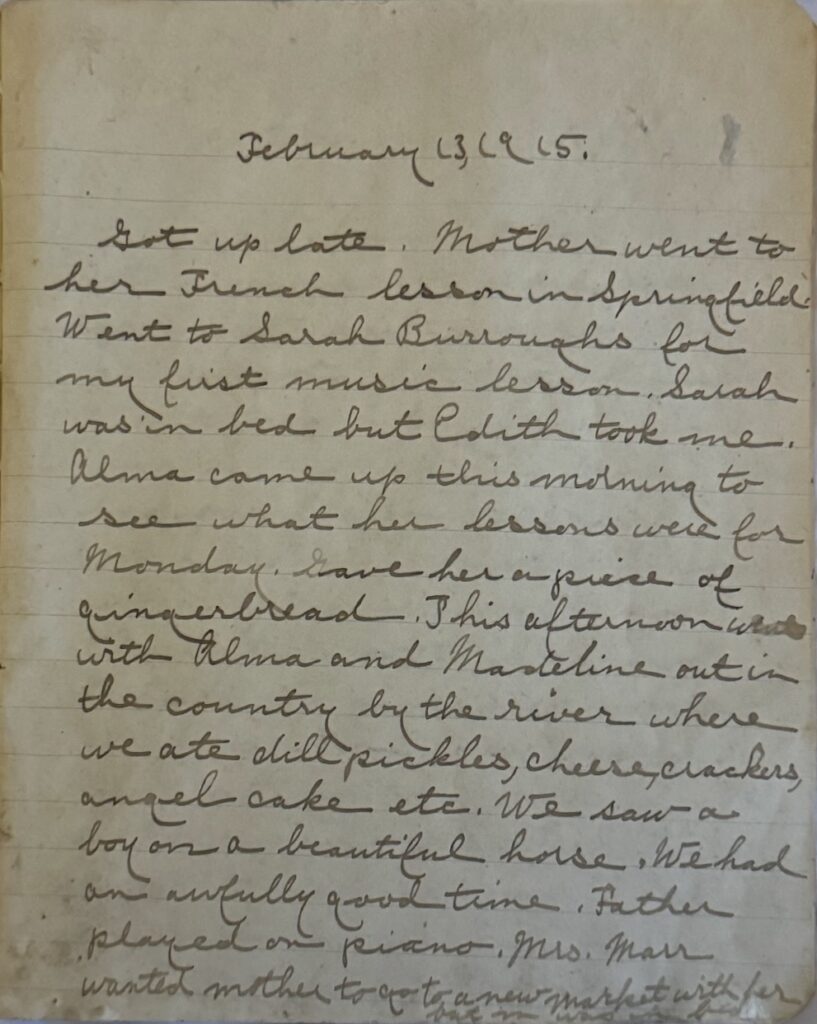 February 13, 1915.
Got up late. Mother went to
her French lesson in Springfield.
Went to Sarah Burroughs for
my first music lesson. Sarah
was in bed but Edith took me.
Alma came up this morning to
see what her lessons were for
Monday. Gave her a piece of
gingerbread. This afternoon went
with Alma and Madeline out in
the country by the river where
we ate dill pickles, cheese, crackers,
angel cake etc. We saw a
boy on a beautiful horse. We had
an awfully good time. Father
played on piano. Mrs. Marr
wanted mother to go to a new market with her
but m was in bed